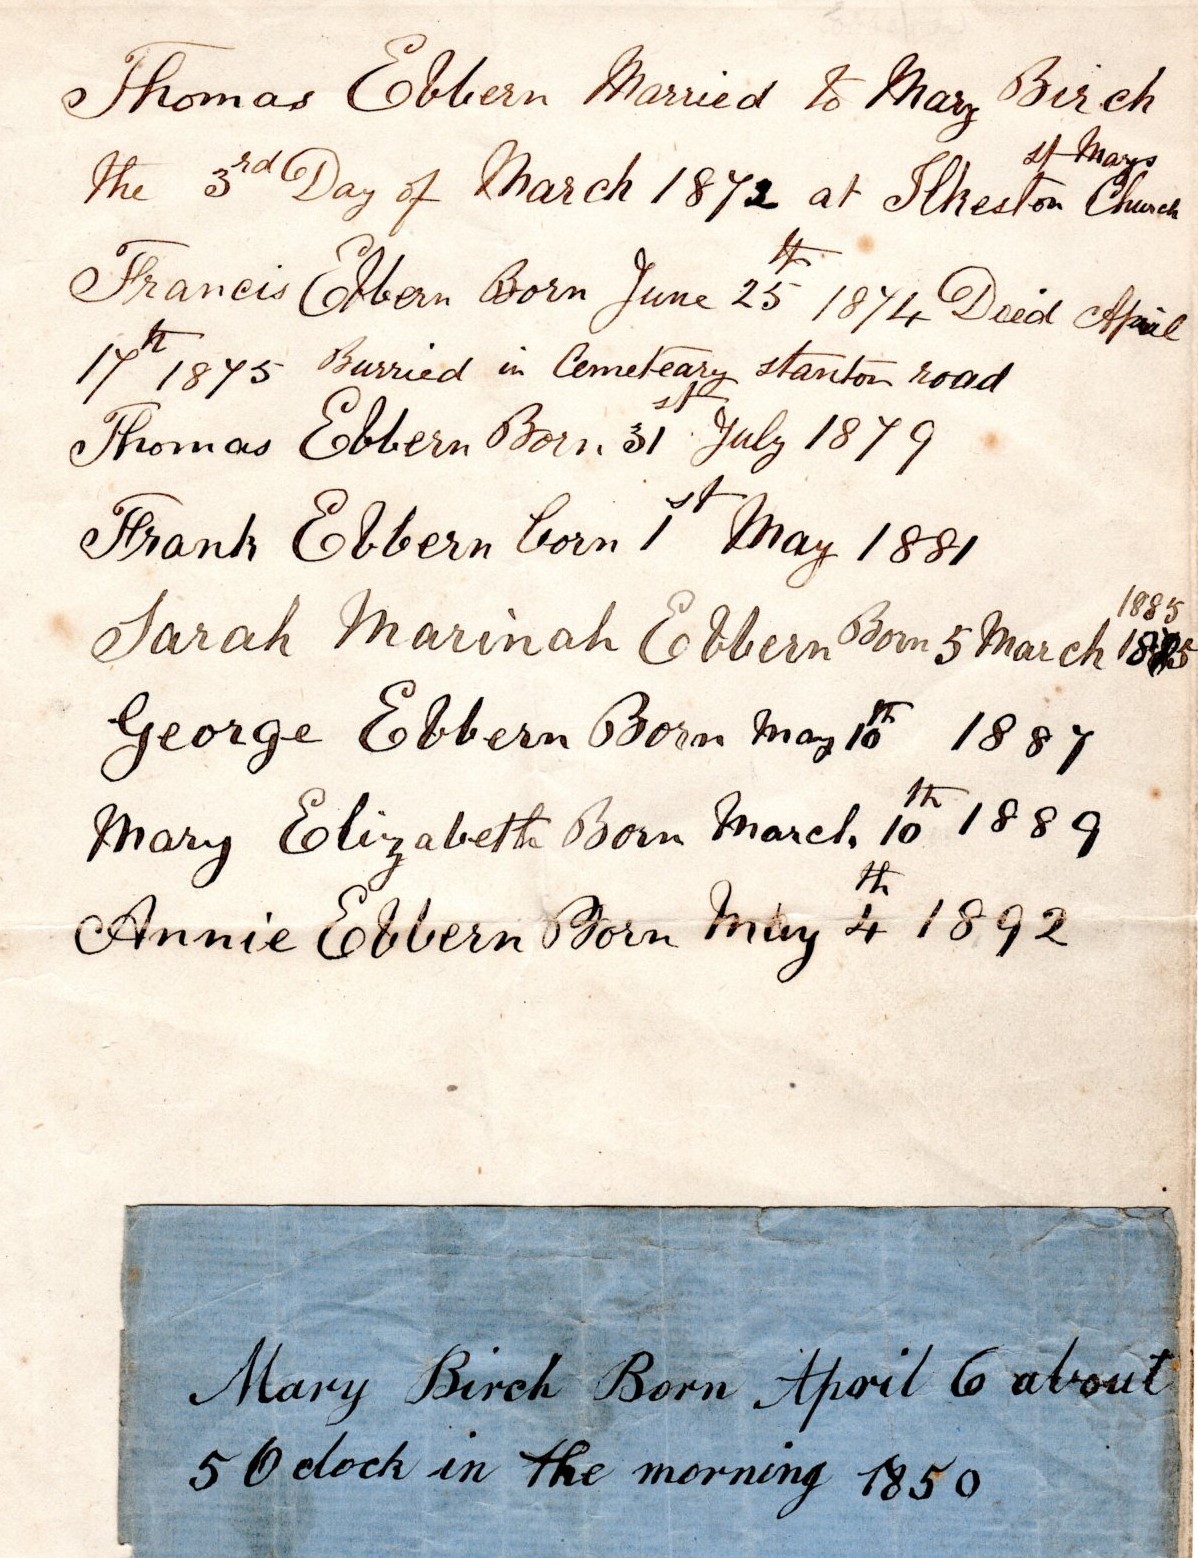 Thomas Ebbern Married to Mary Birch
the 3rd Day of March 1872 at Ilkeston st Marys Church
Francis Ebbern Born June 25th 1874 Deid April
17th 1875 Burried in Cemeteary stanton road
Thomas Ebbern Born 31st July 1879
Frank Ebbern born 1st May 1881
Sarah Marinah Ebbern Born 5 March 1885
George Ebbern Born May 10th 1887
Mary Elizabeth Born March 10th 1889
Annie Ebbern Born May 4th 1892
Mary Birch Born April 6 about
5 O clock in the morning 1850